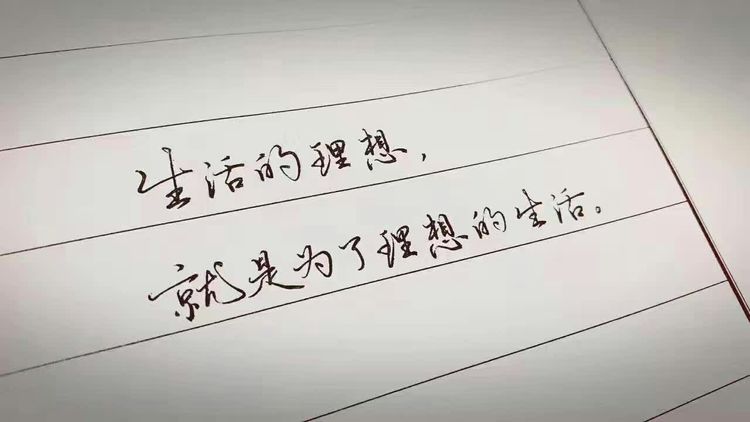 生活的理想，
就是为了理想的生活。